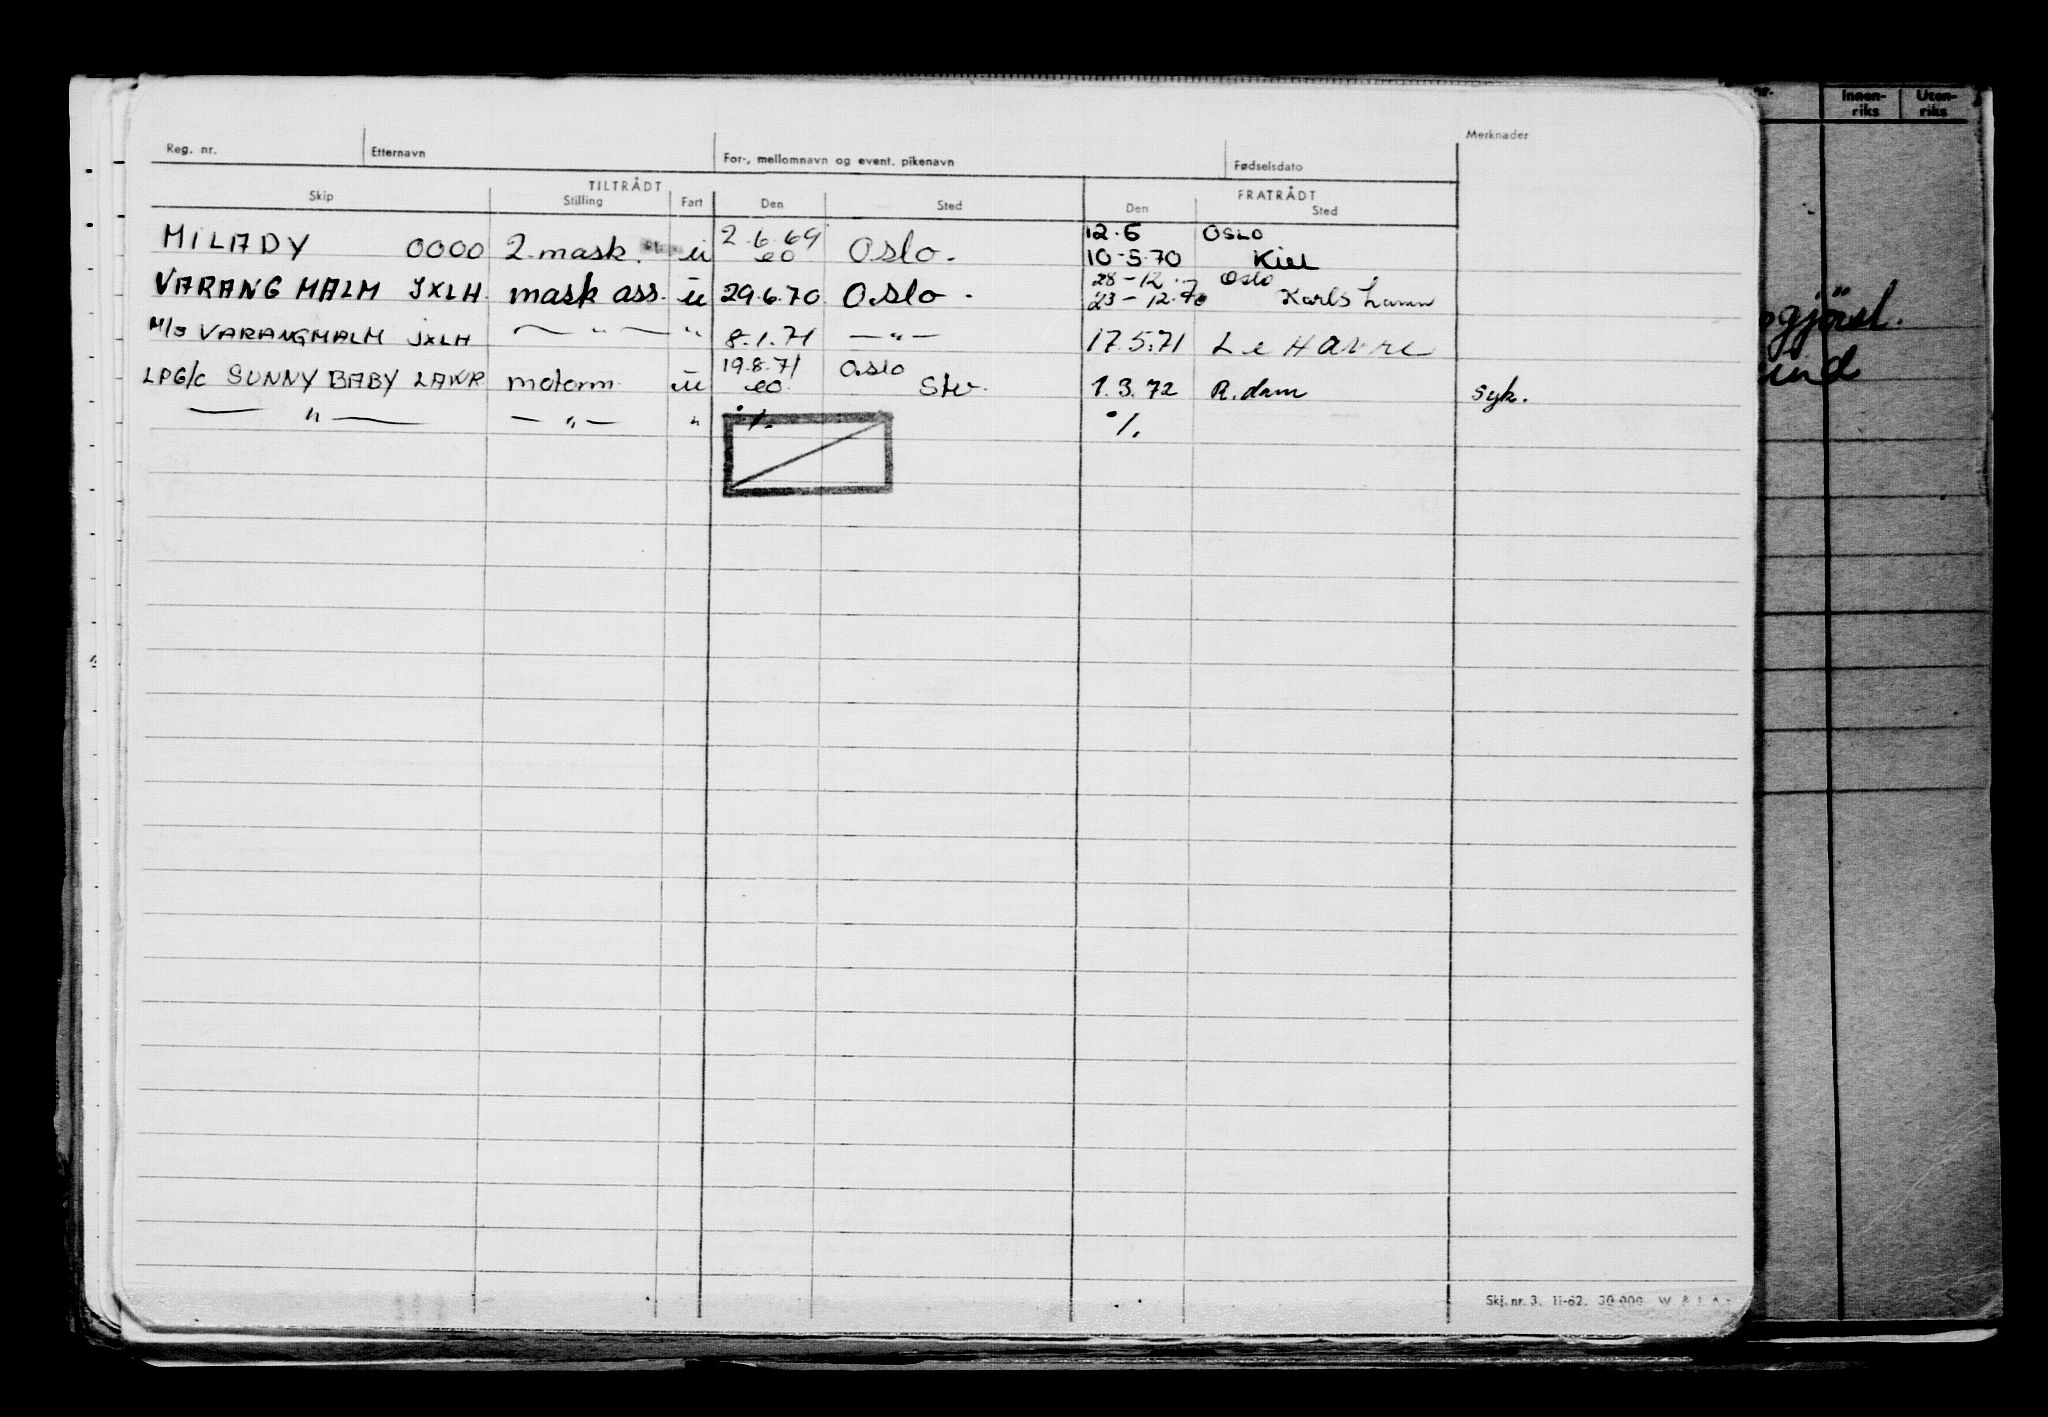 Reg. nr. Etternavn For-, mellomnavn og event. pikenavn Fødselsdato Merknader
TILTRÅDT FRATRÅDT
Skip Stilling Fart Den Sted Den Sted
2.6.69 12.6 OSLO
MILADY OOOO 2 mask. u eo Oslo. 10-5.70 Kiel
28-12 Oslo
VARANG MALM JXLH mask ass. u 29.6.70 Oslo. 23-12.70 Karlshamn
M/S VARANGMALM JXLH — " — " 8.1.71 — " — 17.5.71 Le Havre
19.8.71 Oslo
LPG/C SUNNY BABY LAWR motorm. u eo. Stv. 1.3.72 R.dam syk.
— " — — " — " ./. ./.
Skj. nr. 3. 11-62. 30 000
nr. Innen-riks Uten-riks